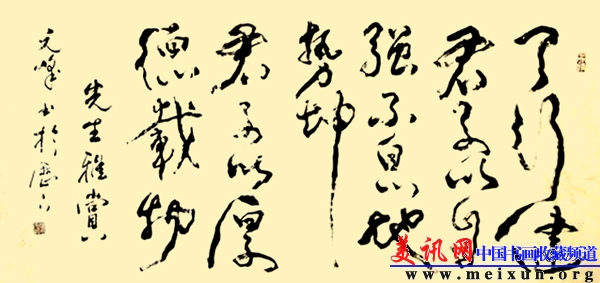 天行健
君子以自
强不息地
势坤
君子以厚
德載物
先生雅賞
元峰书於历下
美讯网 中国书画收藏频道
www.meixun.org